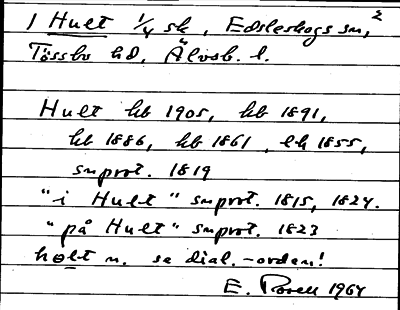 1 Hult 1/4 sk, Edsleskogs sn, 2
Tössbo hd, Älvsb. l.
Hult kb 1905, kb 1891,
kb 1886, kb 1861, lk 1855,
snprot. 1819
"i Hult" snprot. 1815, 1824.
"på Hult" snprot. 1823
holt n. se dial.-orden!
E. 1964